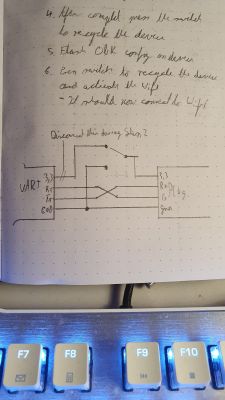 4. After complet press the switch
to recycle the device
5. Flash config on device
6. switch to recycle the device
and activate the Wifi
- It should now connect to Wifi
Disconnect this during Step 2
UART
3,3
Rx
Tx
Gnd
3,3
Rx
Tx
Gnd
F7
F8
F9
F10